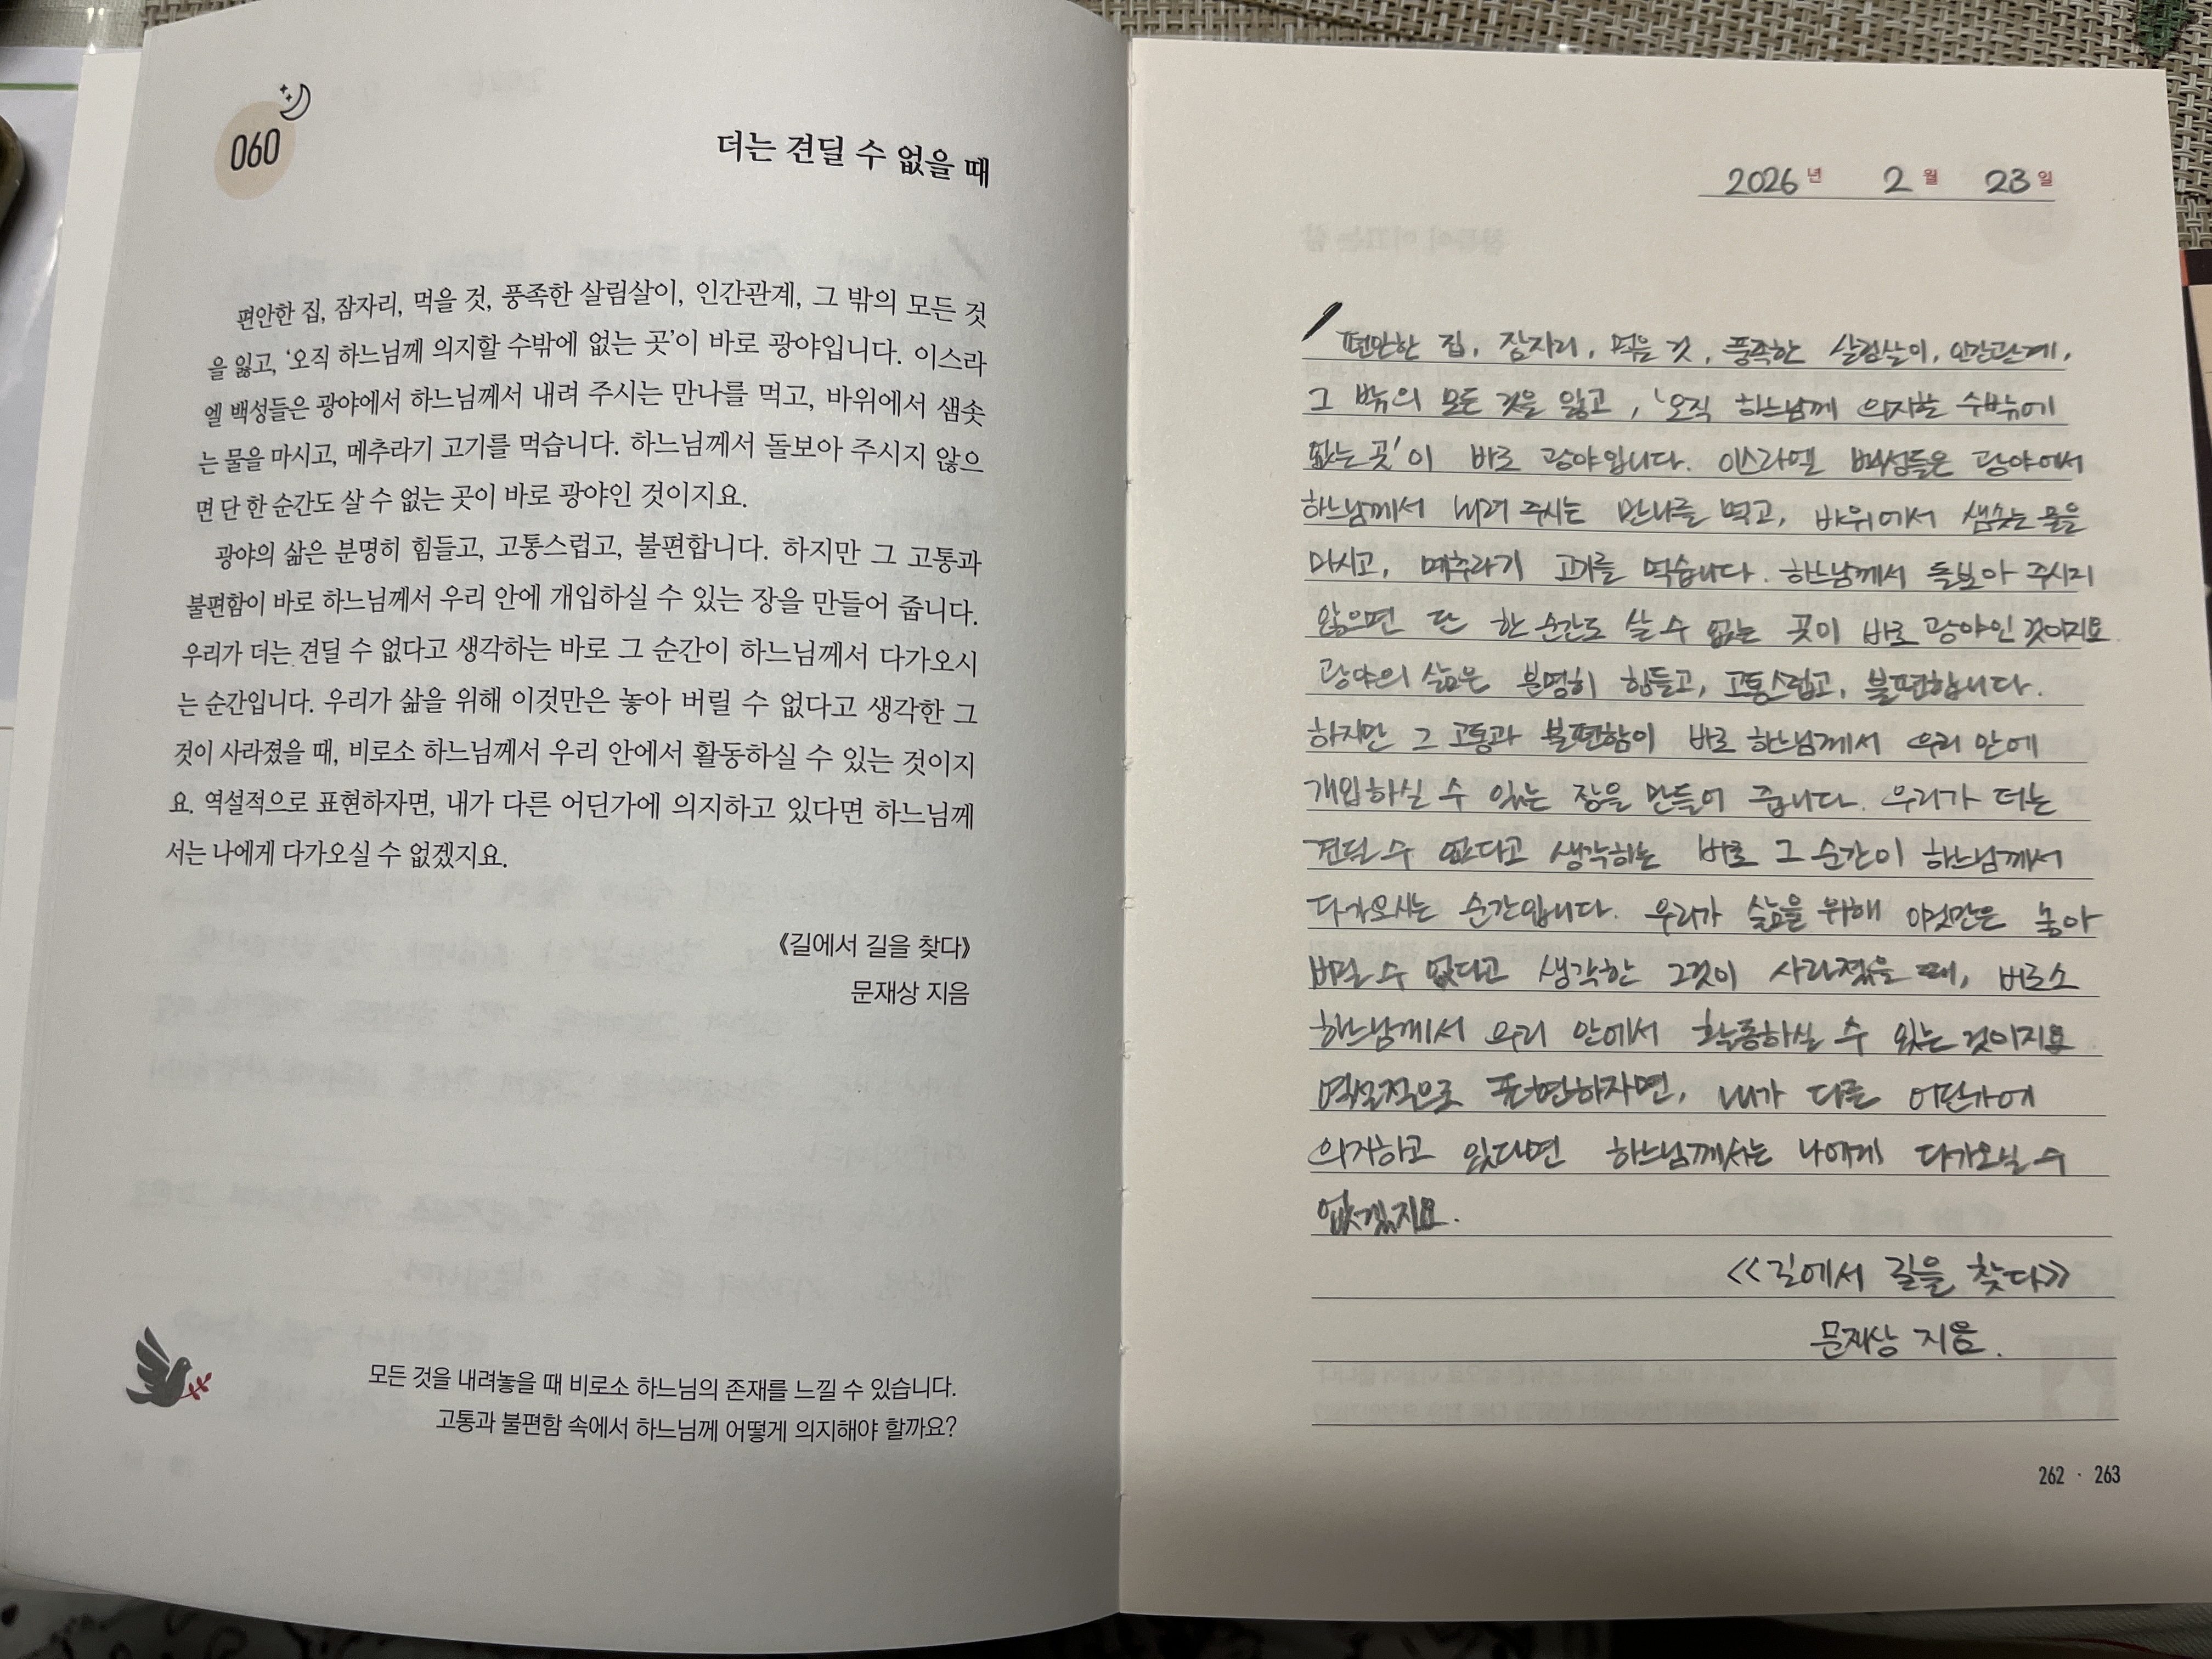 060
더는 견딜 수 없을 때
편안한 집, 잠자리, 먹을 것, 풍족한 살림살이, 인간관계, 그 밖의 모든 것
을 잃고, ‘오직 하느님께 의지할 수밖에 없는 곳’이 바로 광야입니다. 이스라
엘 백성들은 광야에서 하느님께서 내려 주시는 만나를 먹고, 바위에서 샘솟
는 물을 마시고, 메추라기 고기를 먹습니다. 하느님께서 돌보아 주시지 않으
면 단 한 순간도 살 수 없는 곳이 바로 광야인 것이지요.
광야의 삶은 분명히 힘들고, 고통스럽고, 불편합니다. 하지만 그 고통과
불편함이 바로 하느님께서 우리 안에 개입하실 수 있는 장을 만들어 줍니다.
우리가 더는 견딜 수 없다고 생각하는 바로 그 순간이 하느님께서 다가오시
는 순간입니다. 우리가 삶을 위해 이것만은 놓아 버릴 수 없다고 생각한 그
것이 사라졌을 때, 비로소 하느님께서 우리 안에서 활동하실 수 있는 것이지
요. 역설적으로 표현하자면, 내가 다른 어딘가에 의지하고 있다면 하느님께
서는 나에게 다가오실 수 없겠지요.
《길에서 길을 찾다》
문재상 지음
모든 것을 내려놓을 때 비로소 하느님의 존재를 느낄 수 있습니다.
고통과 불편함 속에서 하느님께 어떻게 의지해야 할까요?
2026년 2월 23일
편안한 집, 잠자리, 먹을 것, 풍족한 살림살이, 인간관계,
그 밖의 모든 것을 잃고, ‘오직 하느님께 의지할 수밖에
없는 곳’이 바로 광야입니다. 이스라엘 백성들은 광야에서
하느님께서 내려 주시는 만나를 먹고, 바위에서 샘솟는 물을
마시고, 메추라기 고기를 먹습니다. 하느님께서 돌보아 주시지
않으면 단 한 순간도 살 수 없는 곳이 바로 광야인 것이지요
광야의 삶은 분명히 힘들고, 고통스럽고, 불편합니다.
하지만 그 고통과 불편함이 바로 하느님께서 우리 안에
개입하실 수 있는 장을 만들어 줍니다. 우리가 더는
견딜 수 없다고 생각하는 바로 그 순간이 하느님께서
다가오시는 순간입니다. 우리가 삶을 위해 이것만은 놓아
버릴 수 없다고 생각한 그것이 사라졌을 때, 비로소
하느님께서 우리 안에서 활동하실 수 있는 것이지요
역설적으로 표현하자면, 내가 다른 어딘가에
의지하고 있다면 하느님께서는 나에게 다가오실 수
없겠지요.
<<길에서 길을 찾다>>
문재상 지음.
262 · 263